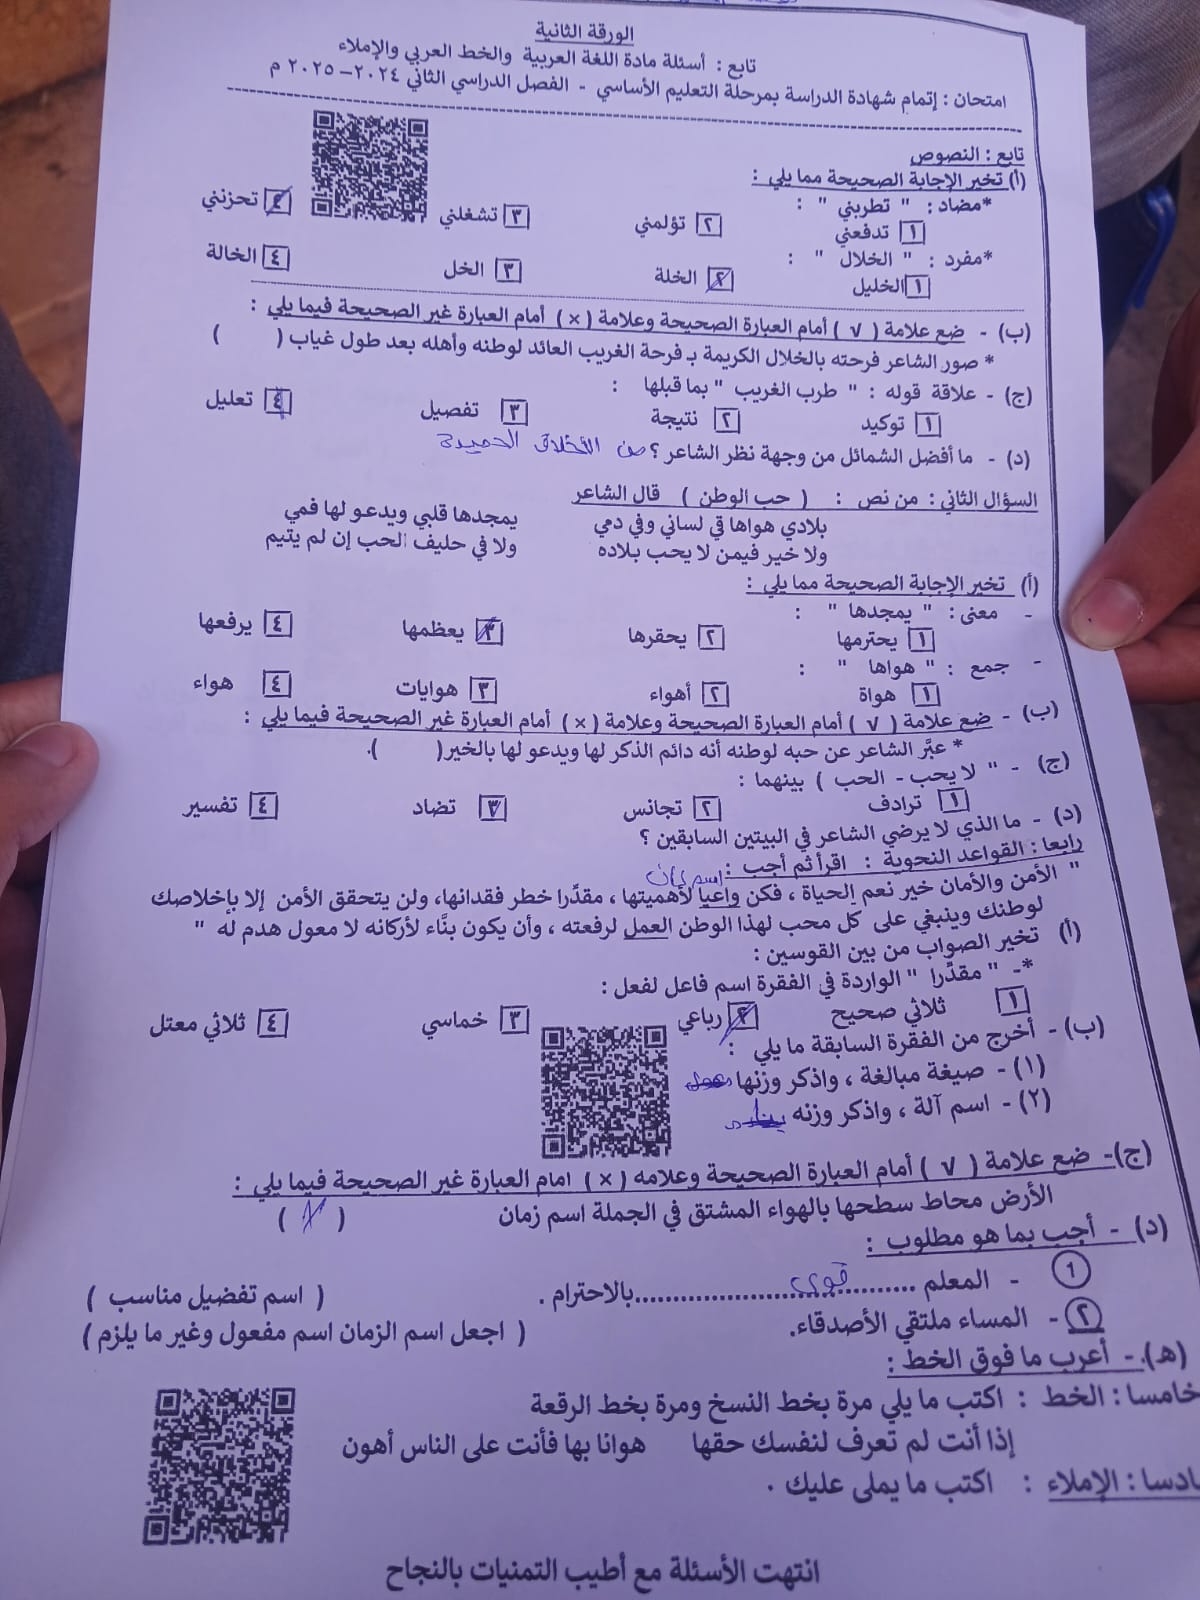 الورقة الثانية
تابع : أسئلة مادة اللغة العربية والخط العربي والإملاء
امتحان : إتمام شهادة الدراسة بمرحلة التعليم الأساسي - الفصل الدراسي الثاني ٢٠٢٤ – ٢٠٢٥ م
تابع : النصوص
(أ) تخير الإجابة الصحيحة مما يلي :
*مضاد : " تطربني " :
١ تدفعني ٢ تؤلمني ٣ تشغلني ٤ تحزنني
*مفرد : " الخلال " :
١ الخليل ٢ الخلة ٣ الخل ٤ الخالة
(ب) - ضع علامة ( √ ) أمام العبارة الصحيحة وعلامة ( × ) أمام العبارة غير الصحيحة فيما يلي :
* صور الشاعر فرحته بالخلال الكريمة بـ فرحة الغريب العائد لوطنه وأهله بعد طول غياب ( )
(ج) - علاقة قوله : " طرب الغريب " بما قبلها :
١ توكيد ٢ نتيجة ٣ تفصيل ٤ تعليل
(د) - ما أفضل الشمائل من وجهة نظر الشاعر ؟ من الأخلاق الحميدة
السؤال الثاني : من نص : ( حب الوطن ) قال الشاعر
بلادي هواها في لساني وفي دمي يمجدها قلبي ويدعو لها فمي
ولا خير فيمن لا يحب بلاده ولا في حليف الحب إن لم يتيم
(أ) تخير الإجابة الصحيحة مما يلي :
- معنى : " يمجدها " :
١ يحترمها ٢ يحقرها ٣ يعظمها ٤ يرفعها
- جمع : " هواها " :
١ هواة ٢ أهواء ٣ هوايات ٤ هواء
(ب) - ضع علامة ( √ ) أمام العبارة الصحيحة وعلامة ( × ) أمام العبارة غير الصحيحة فيما يلي :
* عبَّر الشاعر عن حبه لوطنه أنه دائم الذكر لها ويدعو لها بالخير( ).
(ج) - " لا يحب - الحب ) بينهما :
١ ترادف ٢ تجانس ٣ تضاد ٤ تفسير
(د) - ما الذي لا يرضي الشاعر في البيتين السابقين ؟
رابعا : القواعد النحوية : اقرأ ثم أجب :
" الأمن والأمان خير نعم الحياة ، فكن واعيا لأهميتها ، مقدًرا خطر فقدانها، ولن يتحقق الأمن إلا بإخلاصك
لوطنك وينبغي على كل محب لهذا الوطن العمل لرفعته ، وأن يكون بنَّاء لأركانه لا معول هدم له "
(أ) تخير الصواب من بين القوسين :
*- " مقدًرا " الواردة في الفقرة اسم فاعل لفعل :
١ ثلاثي صحيح ٢ رباعي ٣ خماسي ٤ ثلاثي معتل
(ب) - أخرج من الفقرة السابقة ما يلي :
(١) - صيغة مبالغة ، واذكر وزنها
(٢) - اسم آلة ، واذكر وزنه
(ج)- ضع علامة ( √ ) أمام العبارة الصحيحة وعلامه ( × ) امام العبارة غير الصحيحة فيما يلي :
الأرض محاط سطحها بالهواء المشتق في الجملة اسم زمان ( × )
(د) - أجب بما هو مطلوب :
١ - المعلم ............................بالاحترام . ( اسم تفضيل مناسب )
٢ - المساء ملتقي الأصدقاء. ( اجعل اسم الزمان اسم مفعول وغير ما يلزم )
(هـ). - أعرب ما فوق الخط :
خامسا : الخط : اكتب ما يلي مرة بخط النسخ ومرة بخط الرقعة
إذا أنت لم تعرف لنفسك حقها هوانا بها فأنت على الناس أهون
ادسا : الإملاء : اكتب ما يملى عليك .
انتهت الأسئلة مع أطيب التمنيات بالنجاح